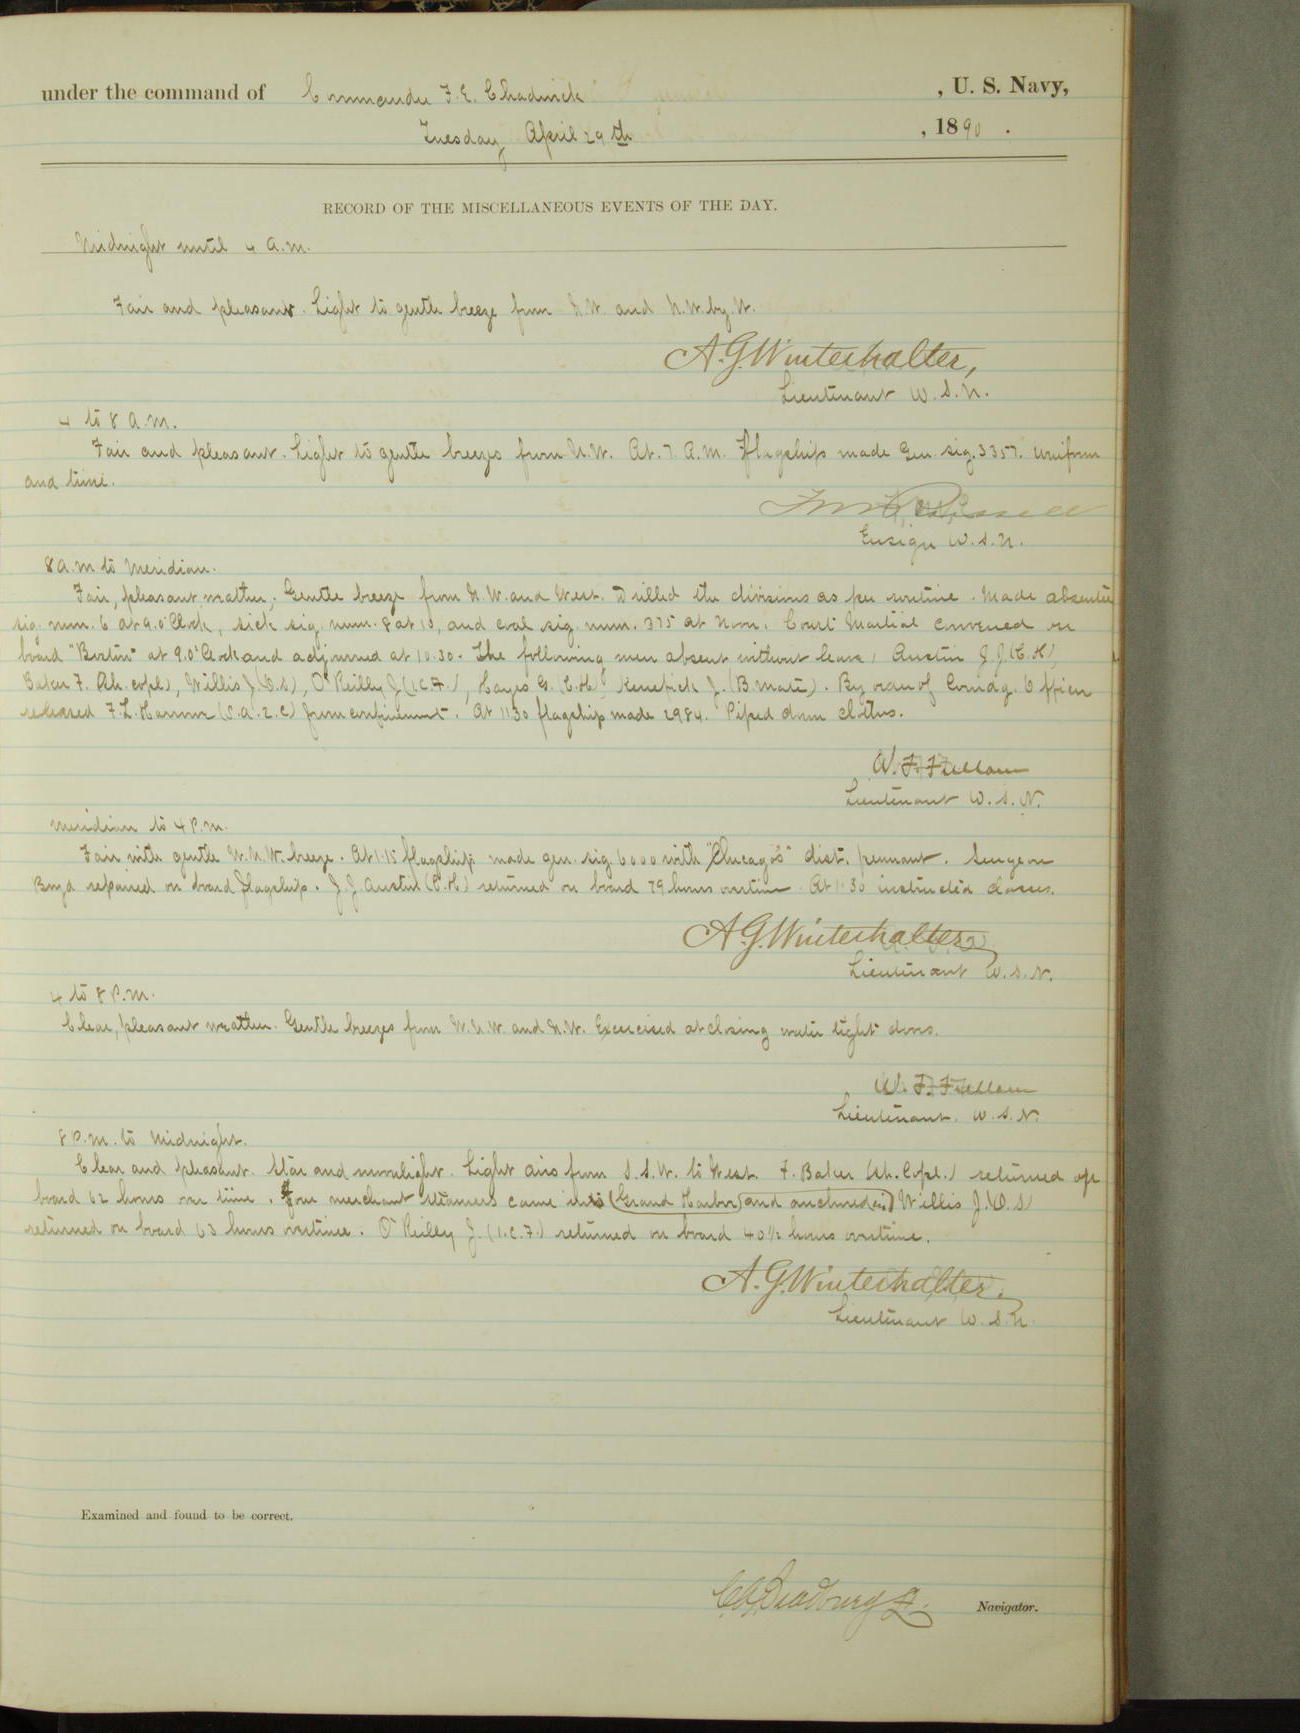 under the command of Commander F. E. Chadwick, U. S. Navy,
Tuesday April 29th, 1890.
RECORD OF THE MISCELLANEOUS EVENTS OF THE DAY.
Midnight until 4 A.M.
Fair and pleasant. Light to gentle breeze from N.W. and N.W. by W.
A.G. Winterhalter,
Lieutenant U.S.N.
4 to 8 A.M.
Fair and pleasant. Light to gentle breezes from N.W. At. 7. A.M. flagships made Gen. sig. 3357. Uniform
and time.
Ensign U.S.N.
8 A.M. to Meridian.
Fair, pleasant weather, Gentle breeze from N.W. and West. Drilled the divisions as per routine. Made absentee
sig. num. 6 at 9.o'Clock, sick sig. num. 8 at 10, and coal sig. num. 375 at Noon. Court Martial convened on
board "Boston" at 9.o'Clock and adjourned at 10.30. The following men absent without leave, Austin J.J. (C.H),
Baker F. (Sh. Copl.), Willis J. (O.S), O'Reilly J. (1.C.F.), Hayes G. (C.H), Kenefick J. (B. Mate). By order of Comdg. Officer
released F.L. Harmon (S.A. 2.C) from confinement. At 1130 flagship made 2984. Piped down clothes.
W. F. Fullam
Lieutenant U.S.N.
Meridian to 4 P.M.
Fair with gentle breeze. At 1.15 flagship made gen. sig 6000 with "Chicago's" dist. pennant. Surgeon
Boyd repaired on board flagship. J.J. Austin (C.H) returned on board 79 hours overtime. At 1.30 instructed classes.
A.G. Winterhalter
Lieutenant U.S.N.
4 to 8 P.M.
Clear, pleasant weather. Gentle breezes from and N.W. Exercised at closing water tight doors.
W. F. Fullam
Lieutenant. U.S.N.
8 P.M. to Midnight.
Clear and pleasant. Star and moonlight. Light airs from S.S.W. to West. F. Baker (Sh. Copl.) returned on
board 62 hours over time. Four merchant steamers came into (Grand Harbor) and anchored Willis J. (O.S)
returned on board 63 hours overtime. O'Reilly J. (1.C.F.) returned on board 40½ hours overtime.
A.G. Winterhalter.
Lieutenant U.S.N.
Examined and found to be correct.
Bradbury Navigator.